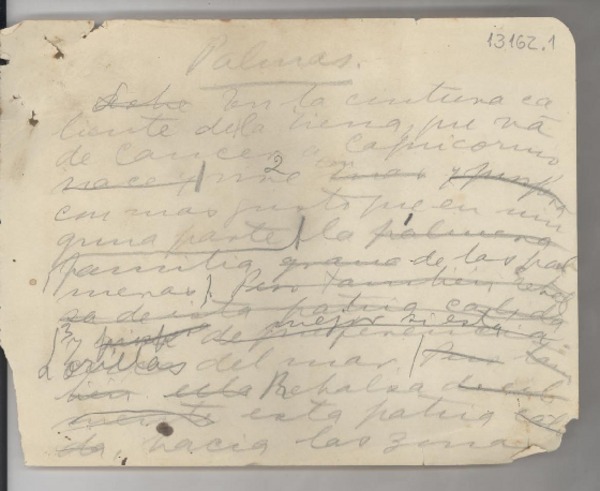 13162.1
Palmas.
En la cintura ca
liente de la tierra, que va
de Cancer a Capricornio
nace y vive 2
con mas gusto que en nin
guna parte la palmera
familia grande de las pal
meras. Pero tambien rebal
sa de esta patria calida
3 y mejor si está a
orillas del mar. Pero tam
bien ella Rebalsa
esta patria cali
da, hacia las zonas